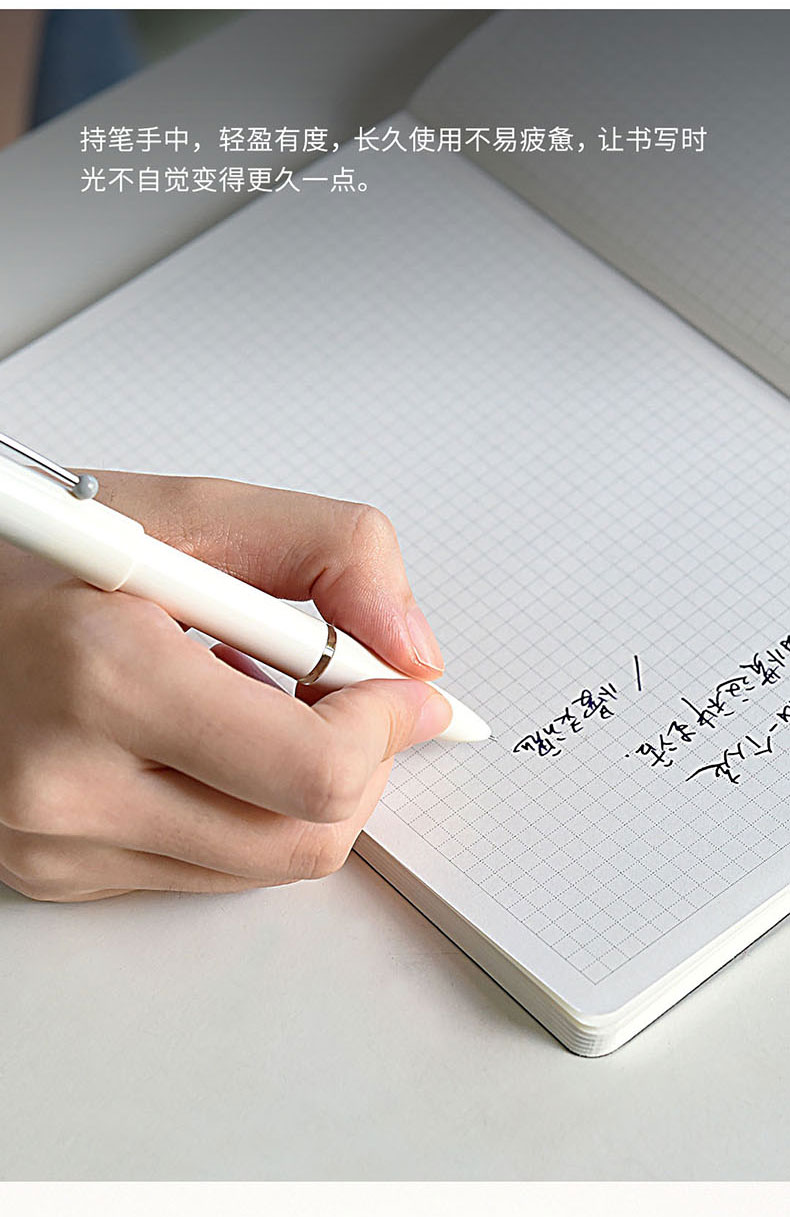 持笔手中，轻盈有度，长久使用不易疲惫，让书写时
光不自觉变得更久一点。
一个人